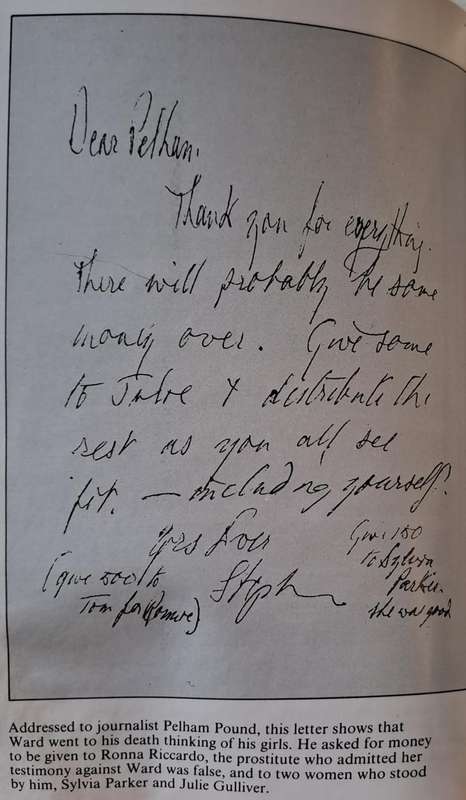 Dear Pelham.
Thank you for everything.
There will probably be some
money over. Give some
to Julie & distribute the
rest as you all see
fit. — including yourself.
Yrs Ever
Stephen
(give 500l to
Tom for
Give 150
to Sylvia
Parker.
she was good
Addressed to journalist Pelham Pound, this letter shows that
Ward went to his death thinking of his girls. He asked for money
to be given to Ronna Riccardo, the prostitute who admitted her
testimony against Ward was false, and to two women who stood
by him, Sylvia Parker and Julie Gulliver.